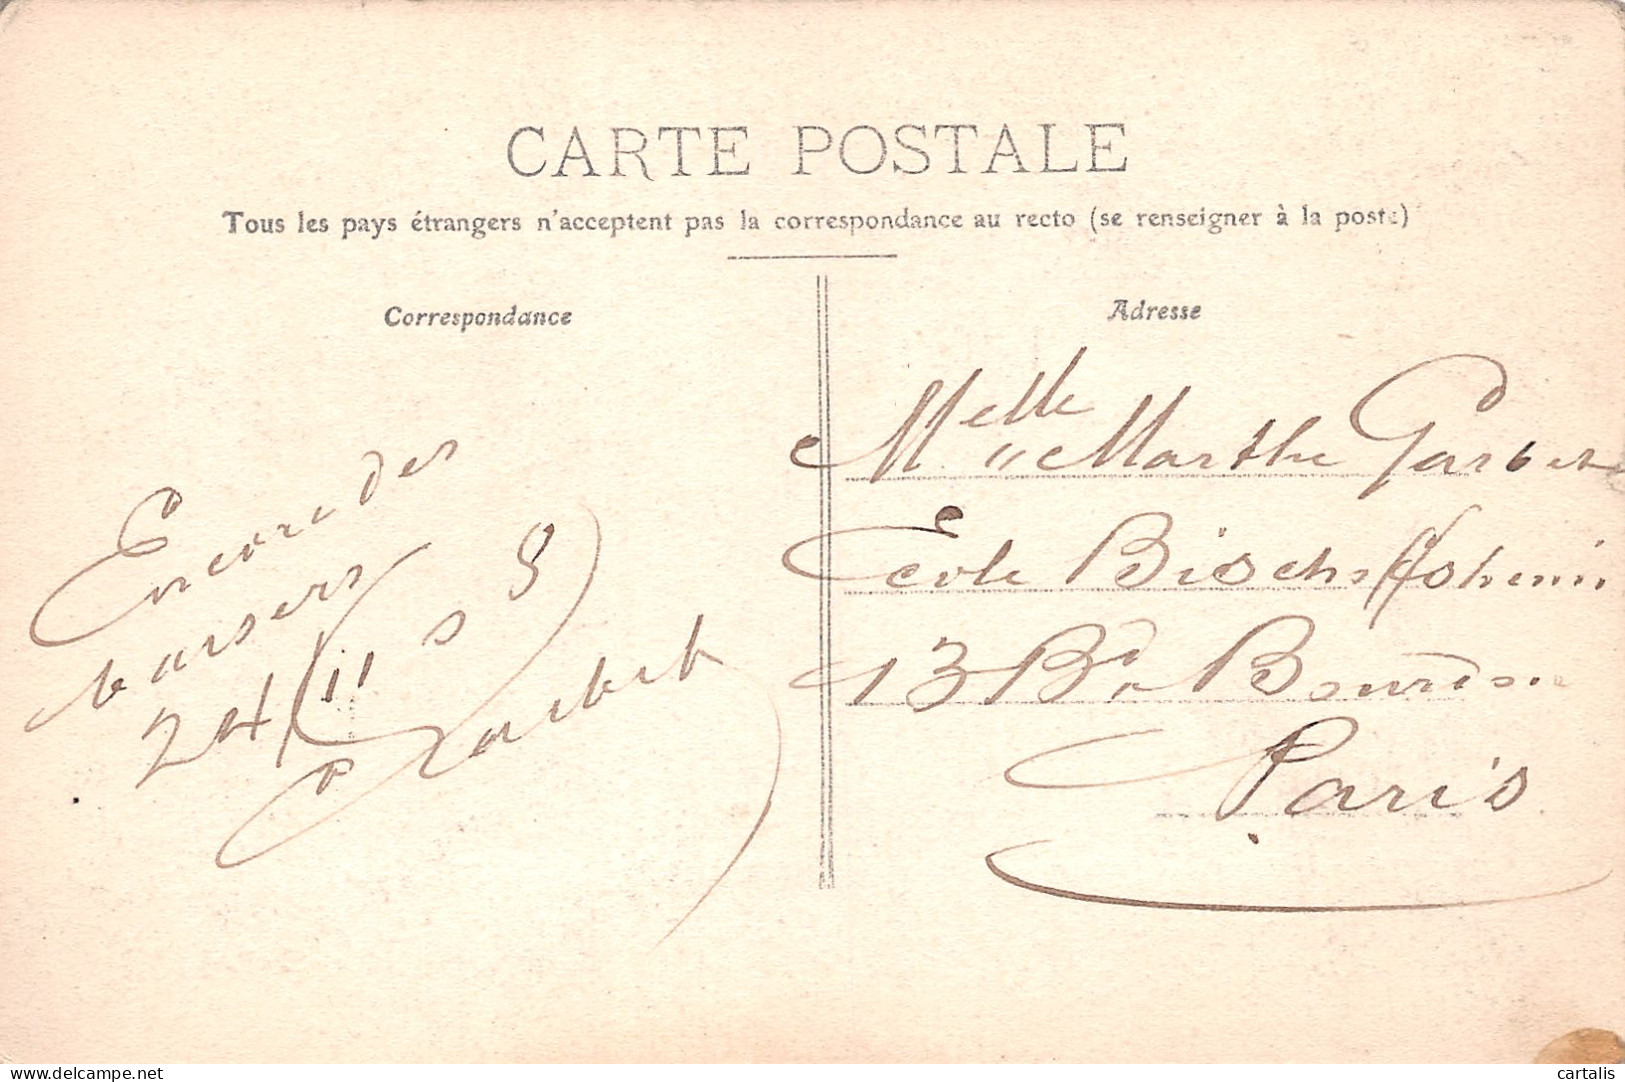 CARTE POSTALE
Tous les pays étrangers n'acceptent pas la correspondance au recto (se renseigner à la poste)
Correspondance
Encore des
baisers
24/11 08
Garbet
Adresse
Melle Marthe Garbet
Ecole Bischoffsheim
13 Bd Bourdon
Paris
www.delcampe.net
cartalis